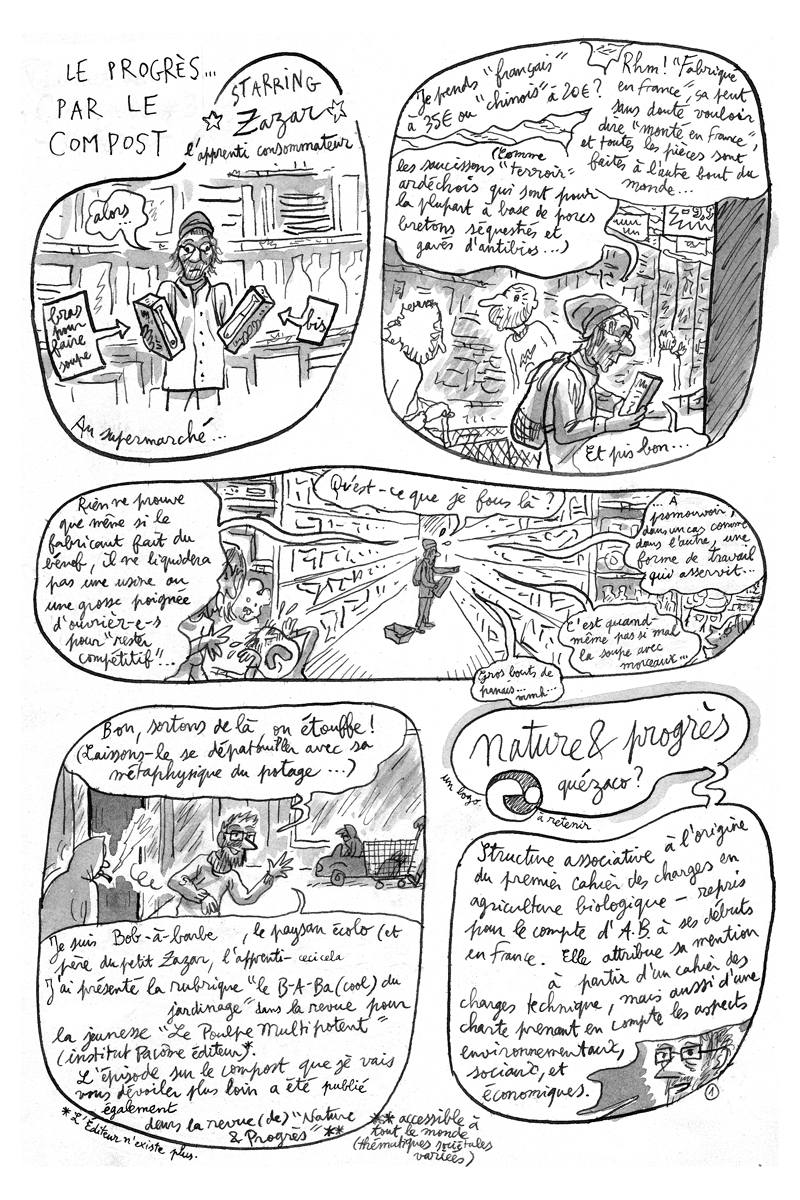 LE PROGRÈS...
PAR LE
COMPOST
STARRING
Zazar
l'apprenti consommateur
alors...
bras
pour
faire
soupe
bis
Au supermarché...
Je prends "français"
à 35€ ou "chinois" à 20€?
Rhm! "Fabriqué
en France", ça peut
sans doute vouloir
dire "monté en France",
et toutes les pièces sont
faites à l'autre bout du
monde...
(Comme
les saucissons "terroir"
ardéchois qui sont pour
la plupart à base de porcs
bretons séquestrés et
gavés d'antibios...)
Et pis bon...
Rien ne prouve
que même si le
fabricant fait du
bénef, il ne liquidera
pas une usine ou
une grosse poignée
d'ouvrier-e-s
pour "rester
compétitif"...
Qu'est-ce que je fous là?
... À
promouvoir,
dans un cas comme
dans l'autre, une
forme de travail
qui asservit...
C'est quand-
même pas si mal
la soupe avec
morceaux...
Gros bouts de
panais... mmh...
Bon, sortons de là, on étouffe!
(Laissons-le se dépatouiller avec sa
métaphysique du potage...)
Je suis Bob-à-barbe, le paysan écolo (et
père du petit Zazar, l'apprenti-ceci cela
J'ai présenté la rubrique "le B-A-Ba(cool) du
jardinage" dans la revue pour
la jeunesse "Le Poulpe Multipotent"
(institut Pacôme éditeur)*.
L'épisode sur le compost que je vais
vous dévoiler plus loin a été publié
également
dans la revue (de) "Nature
& Progrès" **
* L'Éditeur n'existe plus.
** accessible à
tout le monde
(thématiques sociétales
variées)
Nature & progrès
quézaco?
un logo
à retenir
Structure associative à l'origine
du premier cahier des charges en
agriculture biologique - repris
pour le compte d'A.B. à ses débuts
en France. Elle attribue sa mention
à partir d'un cahier des
charges technique, mais aussi d'une
charte prenant en compte les aspects
environnementaux,
sociaux, et
économiques.
1